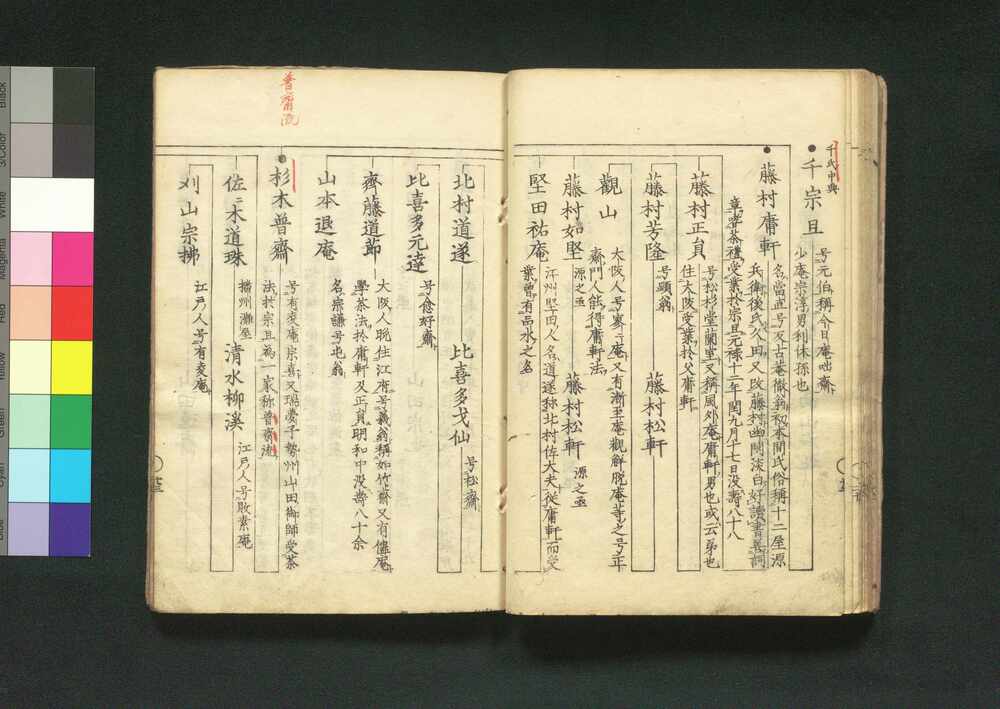 千宗旦
号元伯稱今日庵咄齋
少庵宗淳男利休孫也
藤村庸軒
兵衛後氏久田又改藤村幽閑淡白好讀書善詞
章寄茶禮受業於宗旦元禄十二年閏九月十七日没壽八十八
藤村正員
号松杉堂蘭里又稱風外庵庸軒男也或云弟也
住大阪受業於父庸軒
藤村芳隆
号顕翁
藤村松軒
觀山
大阪人号寥々庵又有漸至庵觀解脱庵等之号正
齋門人能得庸軒法
藤村如堅
源之丞
藤村松軒
源之丞
堅田祐庵
江州堅田人名道遂称北村佐大夫從庸軒而受
業曽有品水之名
北村道遂
比喜多戈仙
号松齋
比喜多元逵
号愈好齋
齊藤道節
大阪人晩住江府号義翁稱如竹齋又有儘庵
學茶法於庸軒及正員明和中没壽八十余
山本退庵
名宗謙号屯翁
普齋流
杉木普齋
号有夌庵宗喜又瑞夢子勢州山田御師受茶
法於宗旦為一家称普齋流
佐々木道珠
播州灘屋
清水柳溪
江戸人号敗素庵
刈山宗拂
江戸人号有夌庵
Black
3/Color
White
Magenta
Red
Yellow
Green
Cyan
Blue